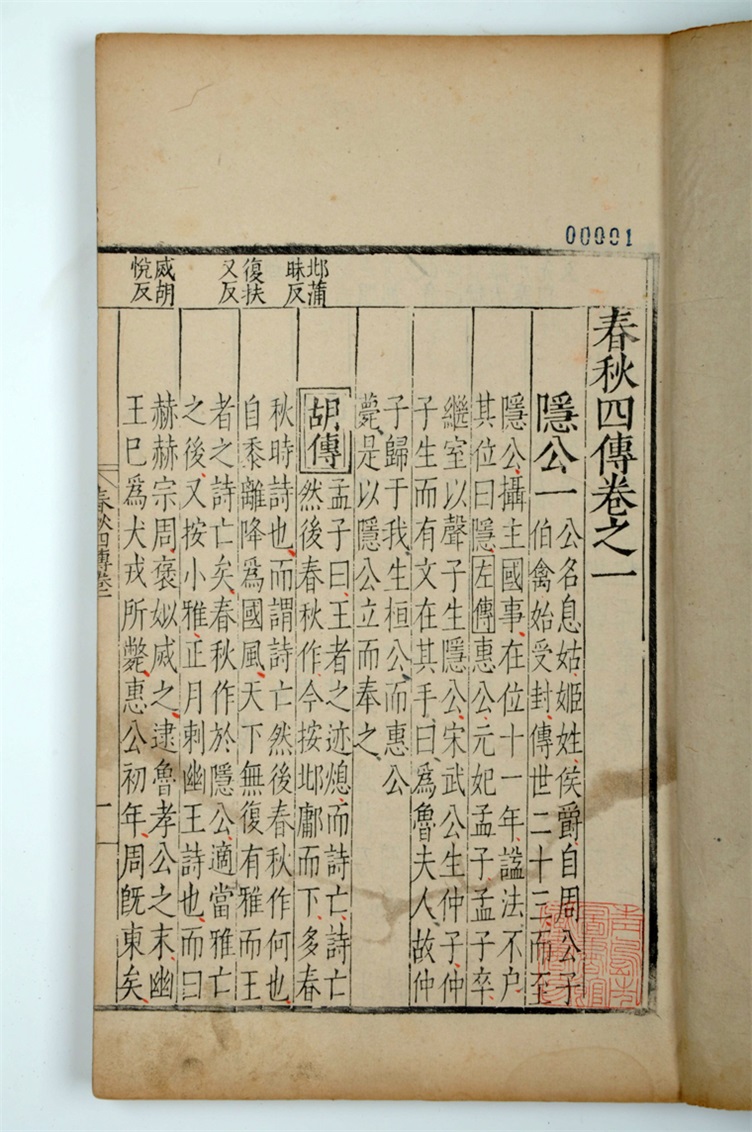 00001
春秋四傳卷之一
隱公一
公名息姑姬姓侯爵自周公子
伯禽始受封傳世二十三而至
隱公攝主國事在位十一年諡法不尸
其位曰隱左傳惠公元妃孟子孟子卒
繼室以聲子生隱公宋武公生仲子仲
子生而有文在其手曰爲魯夫人故仲
子歸于我生桓公而惠公
薨是以隱公立而奉之
邶蒲
昧反
胡傳
孟子曰王者之迹熄而詩亡詩亡
然後春秋作今按邶鄘而下多春
秋時詩也而謂詩亡然後春秋作何也
復扶
又反
自黍離降爲國風天下無復有雅而王
者之詩亡矣春秋作於隱公適當雅亡
之後又按小雅正月刺幽王詩也而曰
烕胡
悅反
赫赫宗周褒姒烕之逮魯孝公之末幽
王巳爲犬戎所斃惠公初年周旣東矣
春秋四傳卷一
一